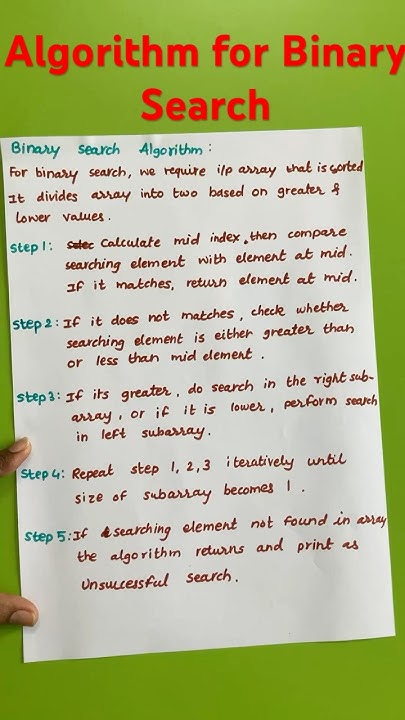 Algorithm for Binary
Search
Binary search Algorithm:
For binary search, we require i/p array that is sorted
It divides array into two based on greater &
lower values.
Step 1: Calculate mid index, then compare
searching element with element at mid.
If it matches, return element at mid.
Step 2: If it does not matches, check whether
searching element is either greater than
or less than mid element.
Step 3: If its greater, do search in the right sub-
array, or if it is lower, perform search
in left subarray.
Step 4: Repeat step 1, 2, 3 iteratively until
size of subarray becomes 1.
Step 5: If searching element not found in array
the algorithm returns and print as
Unsuccessful search.